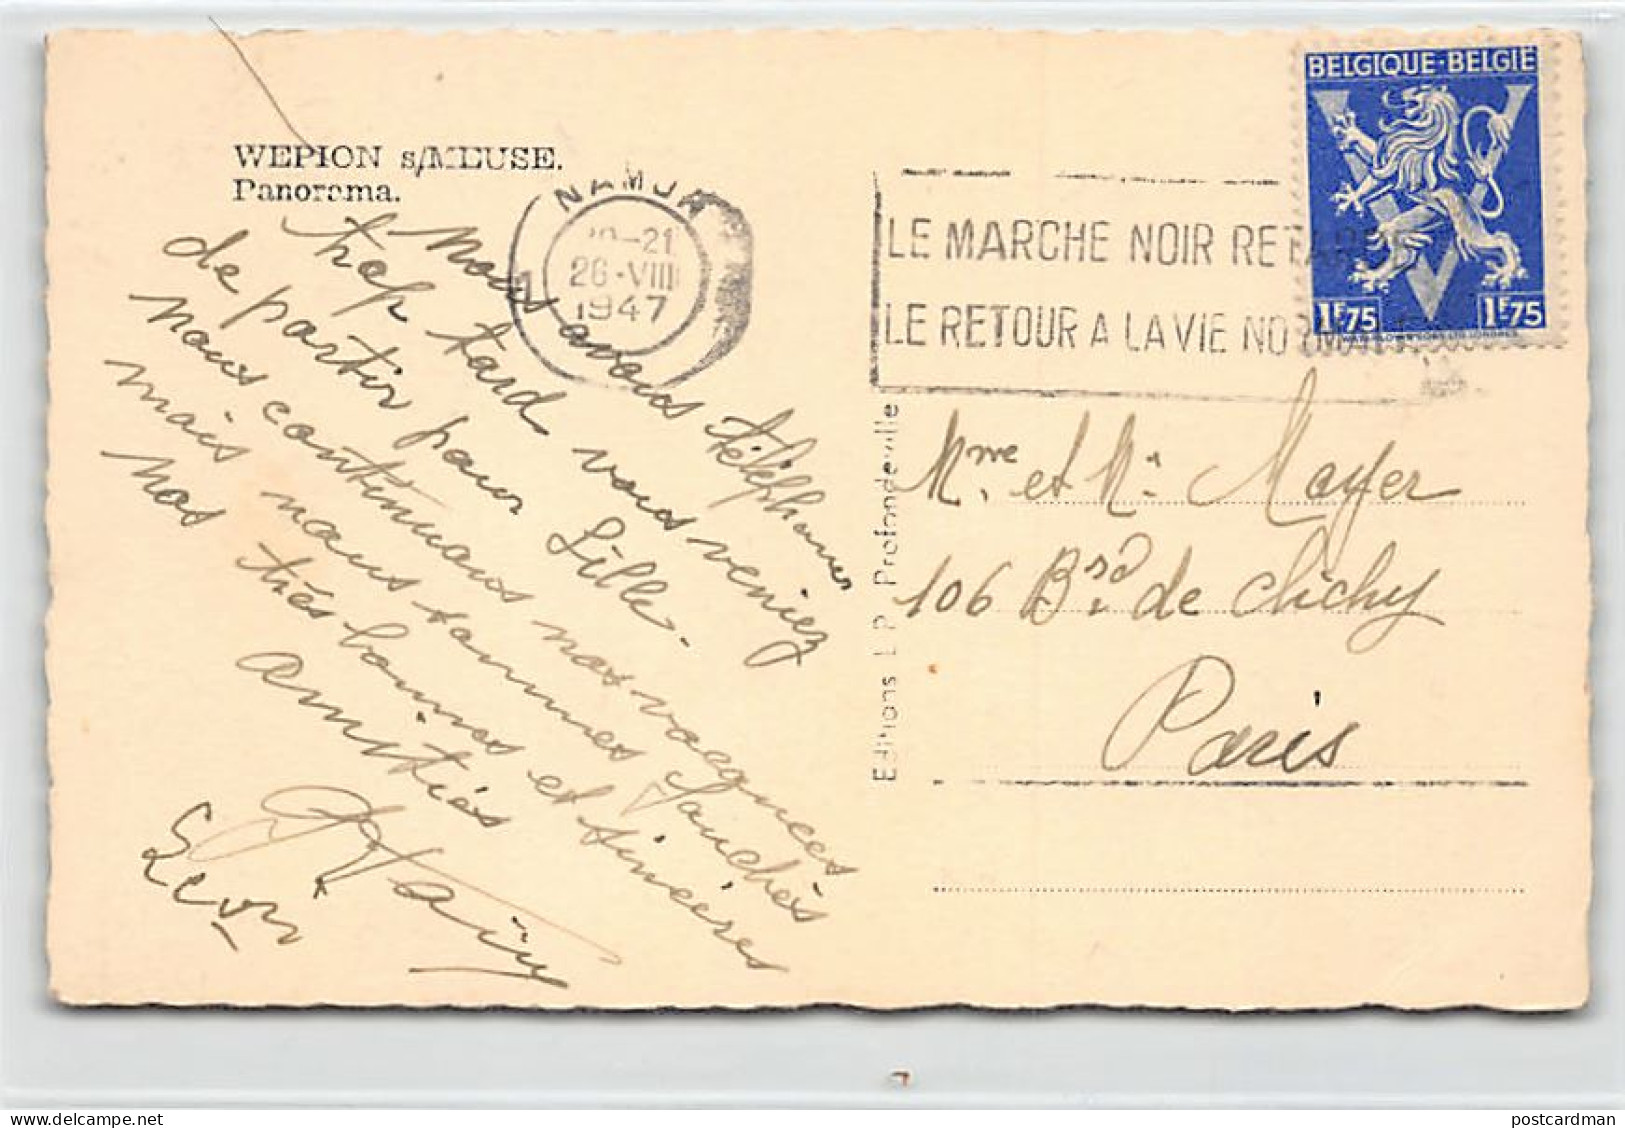 WEPION s/MEUSE.
Panorama.
NAMUR
1
-21
26-VIII
1947
LE MARCHE NOIR RETARDE
LE RETOUR A LA VIE NORMALE
BELGIQUE-BELGIE
1F75 1F75
Nous avons téléphoner
trop tard vous veniez
de partir pour Lille.
nous continuons nos vacances
mais nous sommes
nos très bonnes et sincères
amitiés
Léon
Editions L P Profondeville
Mme et Mr Mayer
106 Brd de Clichy
Paris
postcardman